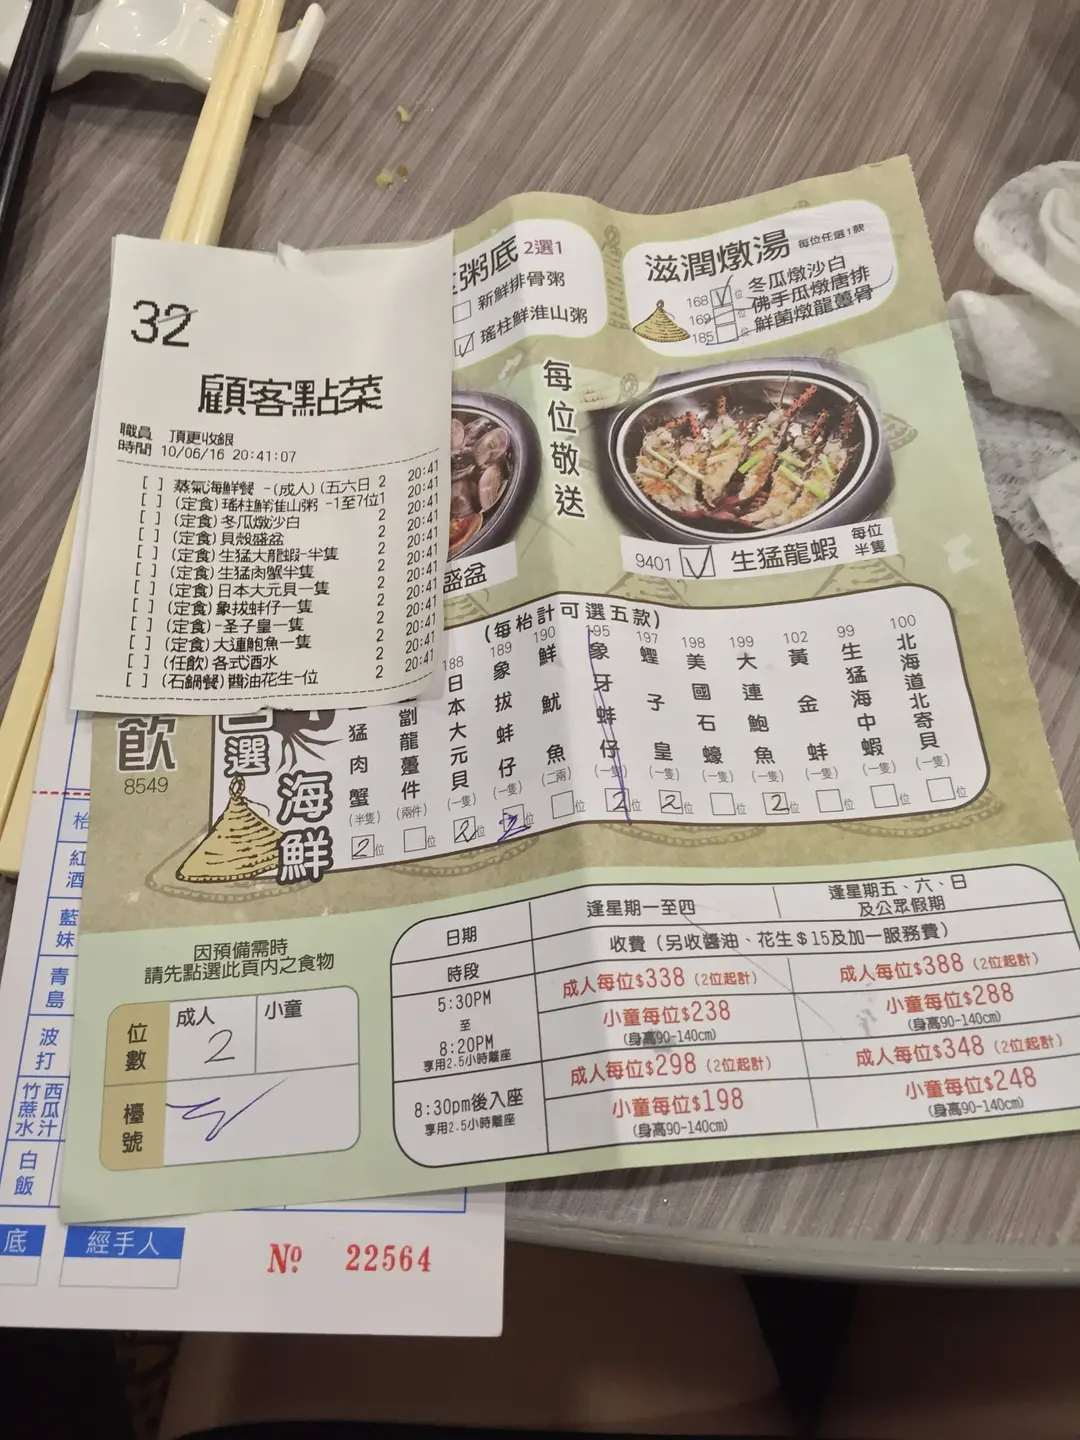 32
顧客點菜
職員 頂更收銀
時間 10/06/16 20:41:07
[ ] 蒸氣海鮮餐 -(成人) (五六日 2 20:41
[ ] (定食) 瑤柱鮮淮山粥 -1至7位1 20:41
[ ] (定食) 冬瓜燉沙白 2 20:41
[ ] (定食) 貝殼盛盆 2 20:41
[ ] (定食) 生猛大龍蝦-半隻 2 20:41
[ ] (定食) 生猛肉蟹半隻 2 20:41
[ ] (定食) 日本大元貝一隻 2 20:41
[ ] (定食) 象拔蚌仔一隻 2 20:41
[ ] (定食) -圣子皇一隻 2 20:41
[ ] (定食) 大連鮑魚一隻 2 20:41
[ ] (任飲) 各式酒水 2 20:41
[ ] (石鍋餐) 醬油花生-位 2 20:41
粥底 2選1
新鮮排骨粥
瑤柱鮮淮山粥
滋潤燉湯 每位任選1款
168 位 冬瓜燉沙白
169 位 佛手瓜燉唐排
185 位 鮮菌燉龍躉骨
每位敬送
盛盆
9401 生猛龍蝦 每位半隻
飲
8549
選
海鮮
(每枱計可選五款)
猛肉蟹 (半隻) 2位
劏龍躉件 (兩件) 位
188 日本大元貝 (一隻) 2位
189 象拔蚌仔 (一隻) 2位
190 鮮魷魚 (二兩) 位
195 象牙蚌仔 (一隻) 2位
197 蟶子皇 (一隻) 2位
198 美國石蠔 (一隻) 位
199 大連鮑魚 (一隻) 2位
102 黃金蚌 (一隻) 位
99 生猛海中蝦 (一隻) 位
100 北海道北寄貝 (一隻) 位
因預備需時
請先點選此頁內之食物
位數 成人 2 小童
檯號
日期 逢星期一至四 逢星期五、六、日及公眾假期
時段 收費 (另收醬油、花生$15及加一服務費)
5:30PM 至 8:20PM 享用2.5小時離座
成人每位$338 (2位起計) 成人每位$388 (2位起計)
小童每位$238 (身高90-140cm) 小童每位$288 (身高90-140cm)
8:30pm後入座 享用2.5小時離座
成人每位$298 (2位起計) 成人每位$348 (2位起計)
小童每位$198 (身高90-140cm) 小童每位$248 (身高90-140cm)
枱
紅酒
藍妹
青島
波打
竹蔗水 西瓜汁
白飯
底 經手人
Nº 22564